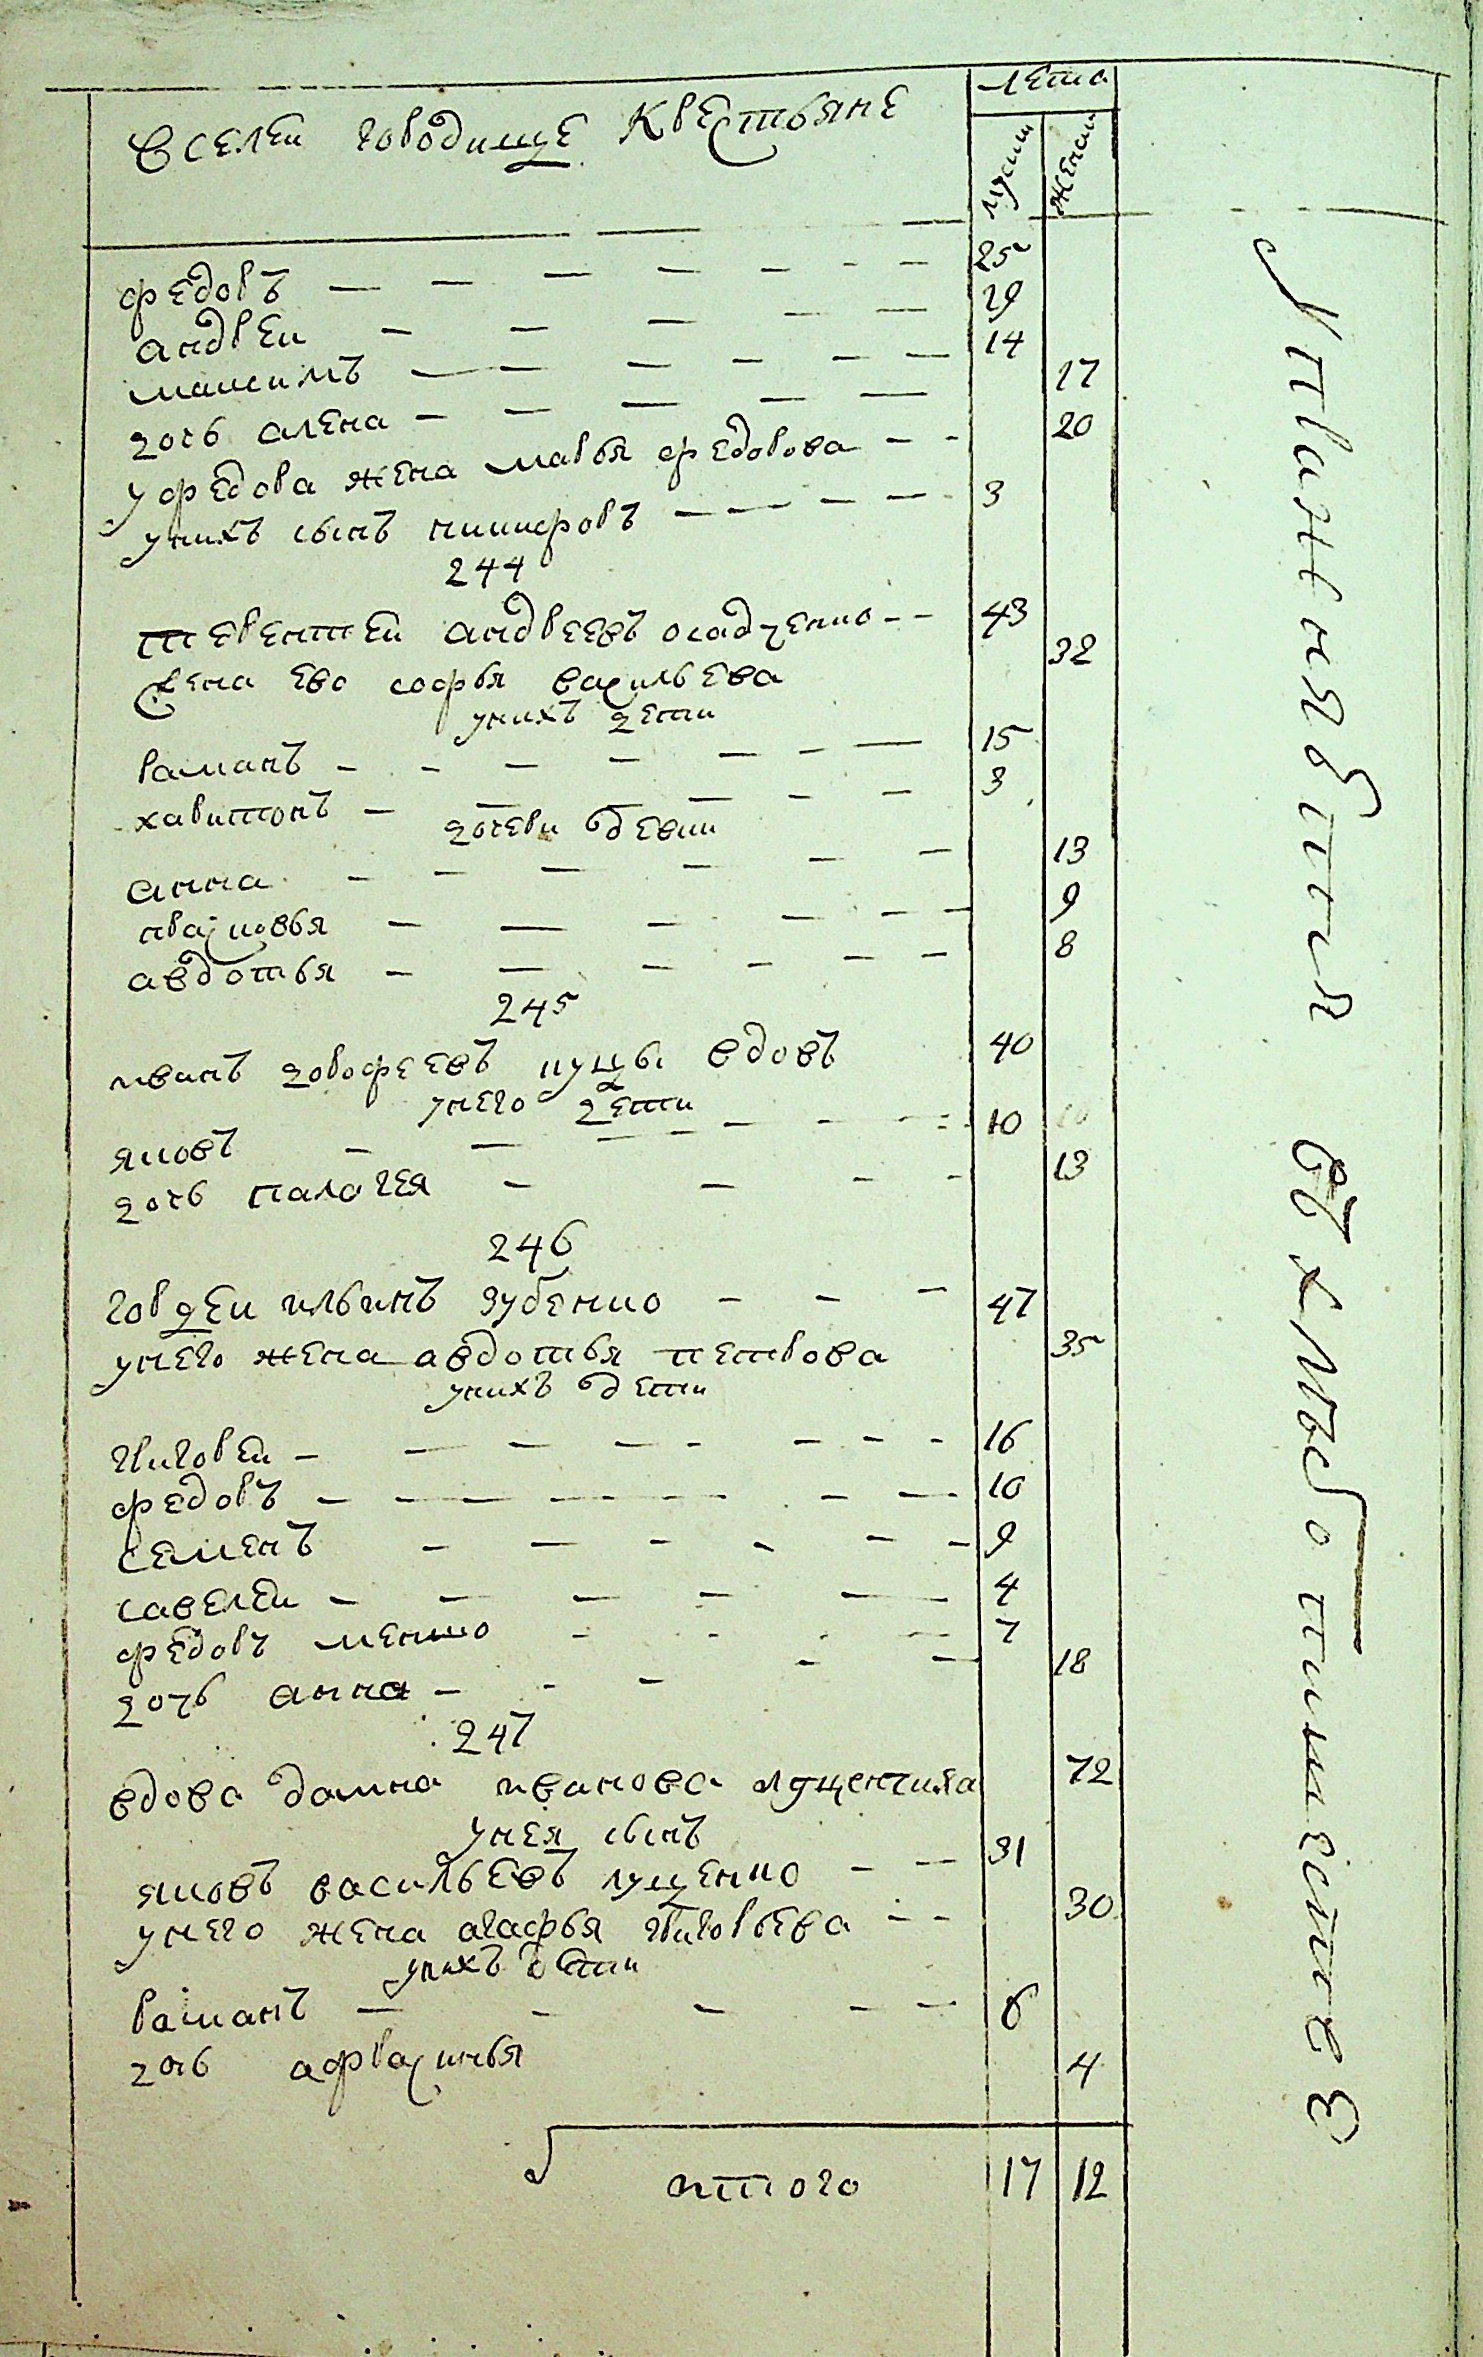 Вселеи городище крестьяне
лета
мужи
женск
федоръ 25
андреи 29
максимъ 14
дочь алена 17
у федора жена марья федорова 20
унихъ сынъ никифоръ 3
244
терентеи андреевъ осадченко 43
жена ево софья васильева 32
унихъ дети
романъ 15
харитонъ 3
дочери девки
анна 13
прасковья 9
авдотья 8
245
иванъ дорофеевъ куцы вдовъ 40
унего дети
яковъ 10
дочь палагея 13
246
гордеи ильинъ зубенко 47
унего жена авдотья петрова 35
унихъ дети
григореи 16
федоръ 10
семенъ 9
савелеи 4
федоръ меншо 7
дочь анна 18
247
вдова домна иванова лущенчиха 72
унея сынъ
яковъ васильевъ лущенко 31
унего жена агафья григорьева 30
унихъ дети
романъ 6
дочь афросинья 4
итого 17 12